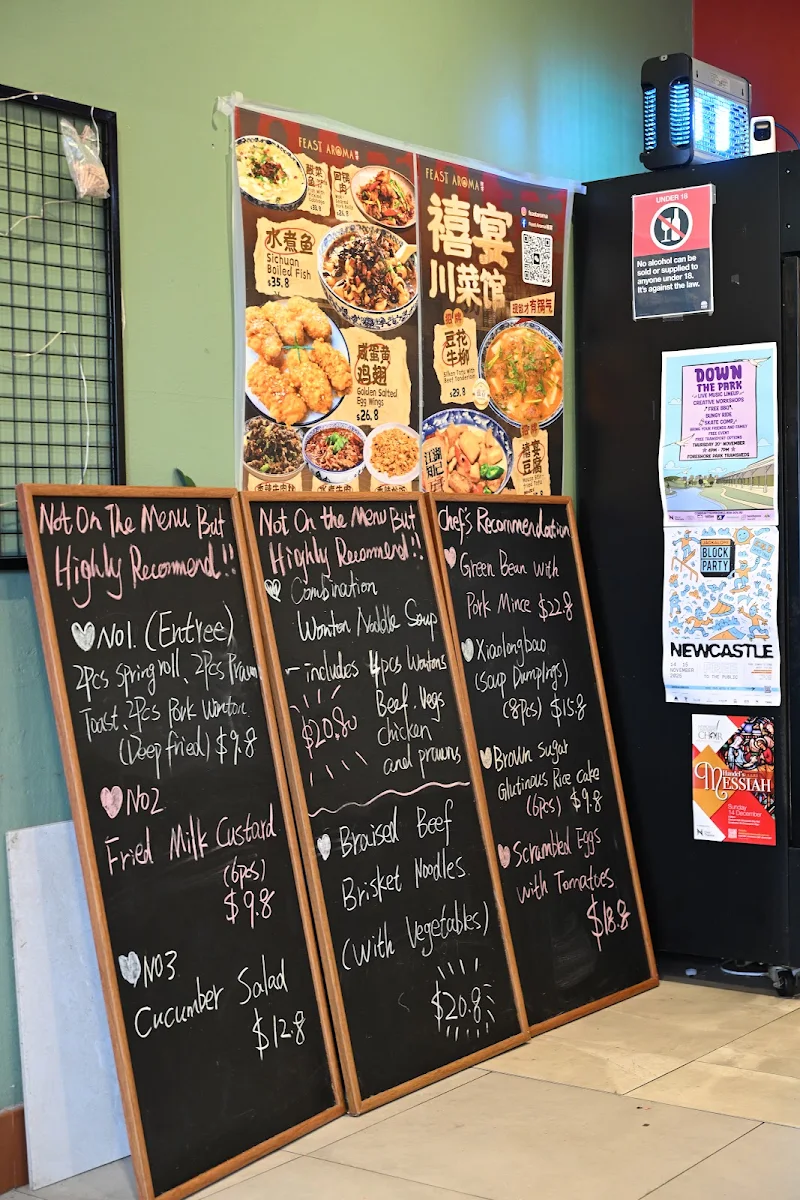 FEAST AROMA
水煮鱼
Sichuan
Boiled Fish
$35.8
咸蛋黄
鸡翅
Golden Salted
Egg Wings
$26.8
FEAST AROMA
禧宴
川菜馆
豆花
牛柳
$29.8
江湖
禧宴
豆腐
UNDER 18
No alcohol can be
sold or supplied to
anyone under 18.
It's against the law.
DOWN
THE PARK
LIVE MUSIC LINEUP
CREATIVE WORKSHOPS
FREE BBQ
BUNGY RIDE
SKATE COMP
BRING YOUR FRIENDS AND FAMILY
FREE EVENT
FREE TRANSPORT OPTIONS
THURSDAY 20TH NOVEMBER
4PM - 7PM
FORESHORE PARK TRAINSHEDS
BLOCK
PARTY
NEWCASTLE
14 15
NOVEMBER
2025
TO THE PUBLIC
Handel's
MESSIAH
Sunday
14 December
Not On The Menu But
Highly Recommend!!
No1. (Entree)
2pcs Spring roll, 2pcs Prawn
Toast, 2pcs Pork Wonton
(Deep fried) $9.8
No2
Fried Milk Custard
(6pcs)
$9.8
No3
Cucumber Salad
$12.8
Not On the Menu But
Highly Recommend!!
Combination
Wonton Noddle Soup
- includes 4pcs Wontons
Beef. Vegs
$20.80
chicken
and prawns
Braised Beef
Brisket Noodles
(With Vegetables)
$20.8
Chef's Recommendation
Green Bean with
Pork Mince $22.8
Xiaolongbao
(Soup Dumplings)
(8pcs) $15.8
Brown Sugar
Glutinous Rice Cake
(6pcs) $9.8
Scrambled Eggs
with Tomatoes
$18.8